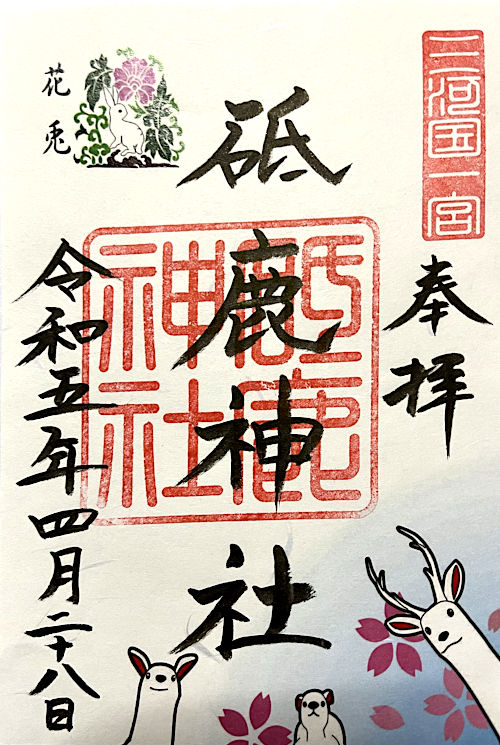 三河国一宮
奉拝
砥鹿神社
砥鹿
神社
花兎
令和五年四月二十八日